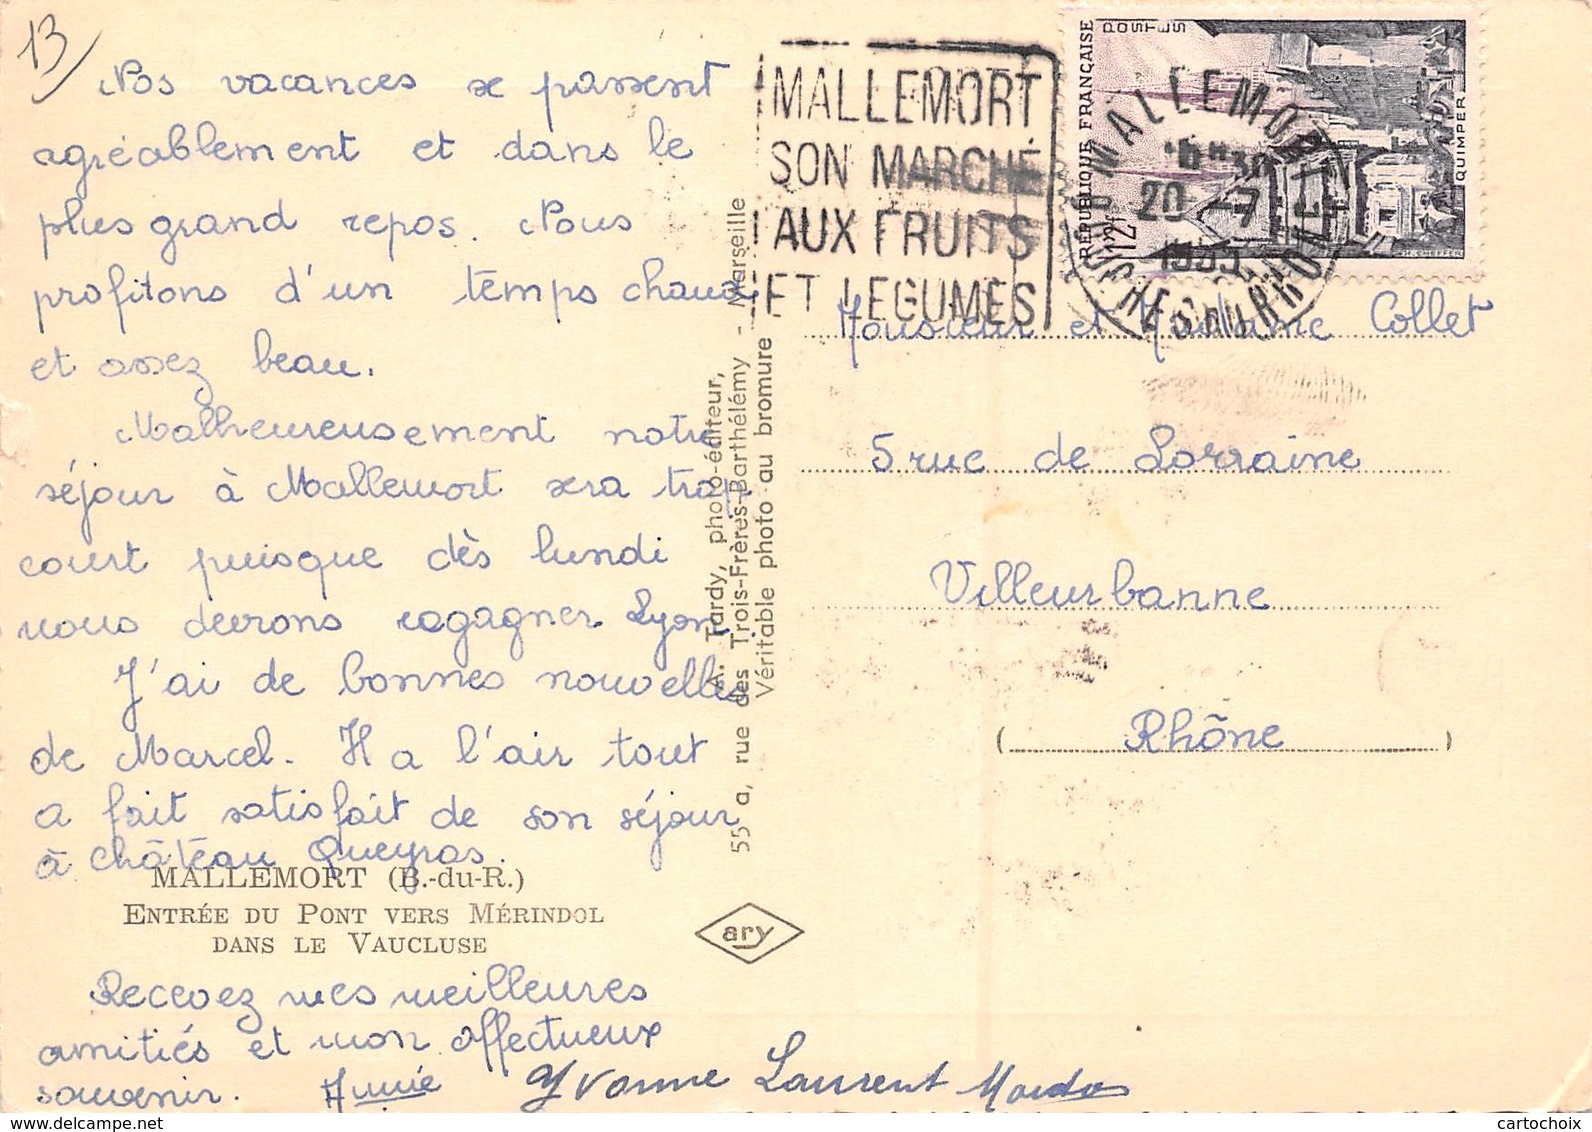 13
Nos vacances se passent
agréablement et dans le
plus grand repos. Nous
profitons d'un temps chaud
et assez beau.
Malheureusement notre
séjour à Mallemort sera trop
court puisque dès lundi
nous devrons regagner Lyon.
J'ai de bonnes nouvelles
de Marcel. Il a l'air tout
a fait satisfait de son séjour
à château Queyras.
MALLEMORT (B.-du-R.)
ENTRÉE DU PONT VERS MÉRINDOL
DANS LE VAUCLUSE
Recevez mes meilleures
amitiés et mon affectueux
souvenir. Annie
Yvonne Laurent
A. Tardy, photo-éditeur,
55 a, rue des Trois-Frères-Barthélémy - Marseille
Véritable photo au bromure
ary
MALLEMORT
SON MARCHÉ
AUX FRUITS
ET LEGUMES
RÉPUBLIQUE FRANÇAISE
POSTES
12f
QUIMPER
H. CHEFFER
MALLEMORT
20 -7
BOUCHES DU RHONE
Monsieur et Madame Collet
5 rue de Lorraine
Villeurbanne
(Rhône)
cartochoix